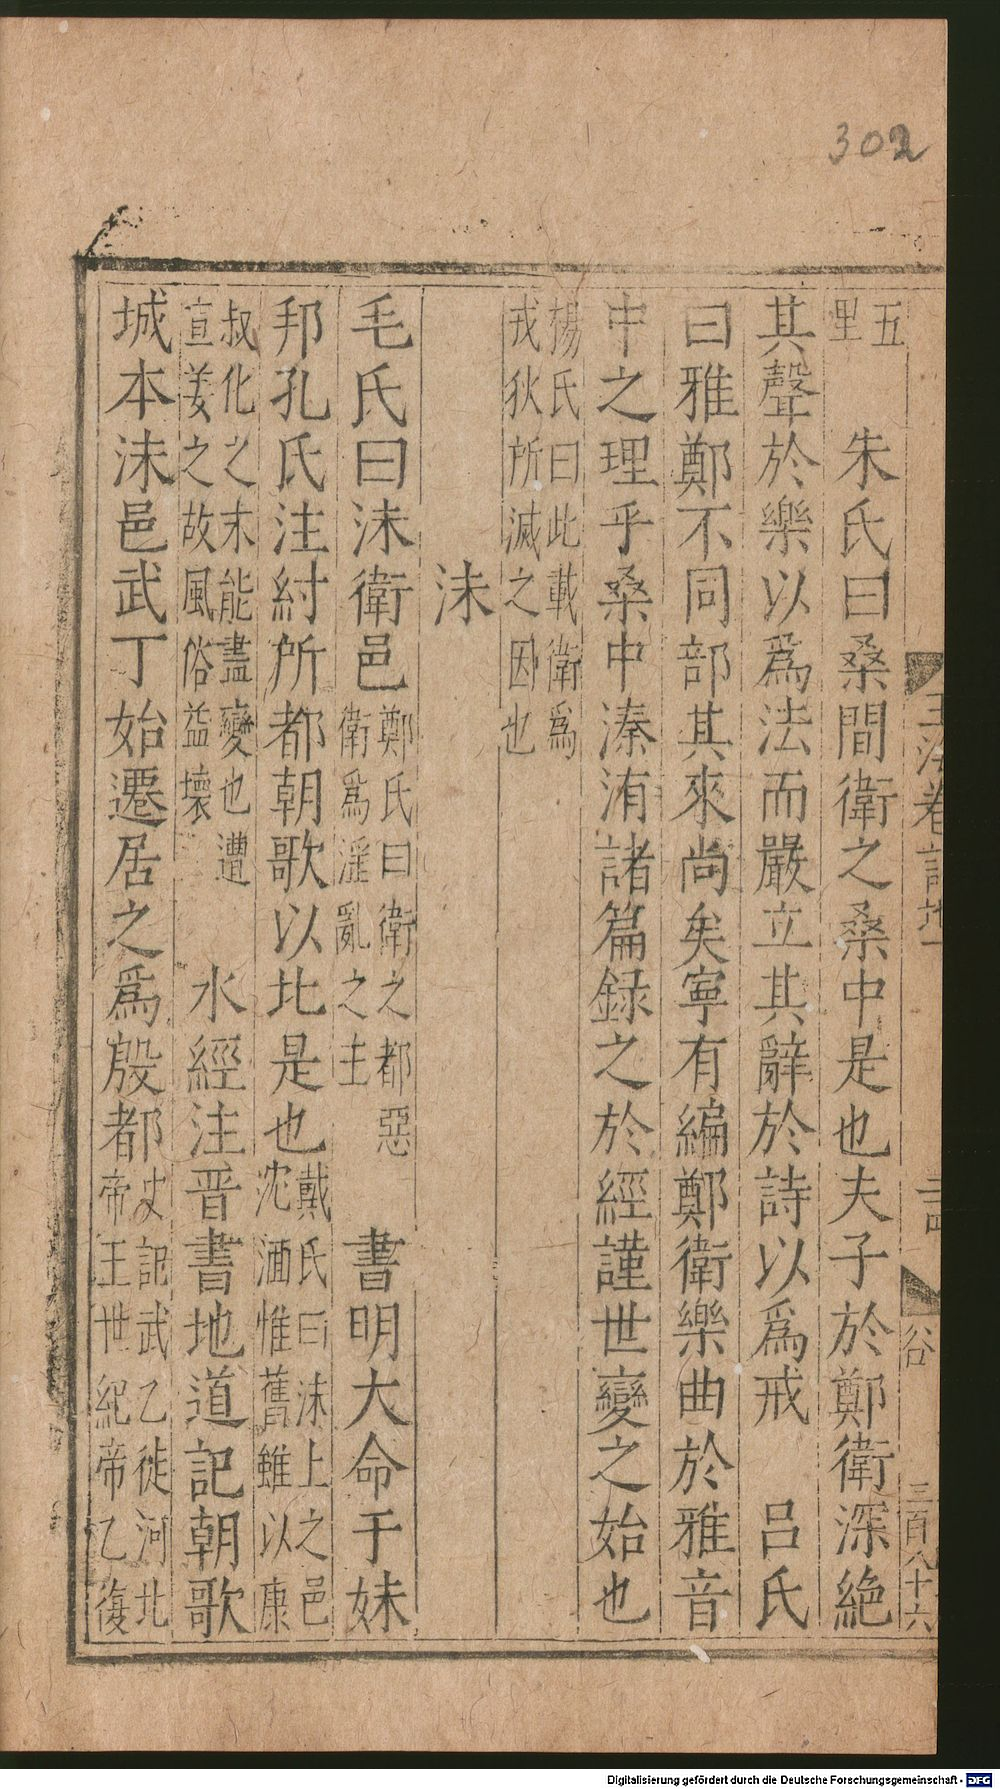 302
五里　朱氏曰桑間衛之桑中是也夫子於鄭衛深絶
其聲於樂以爲法而嚴立其辭於詩以爲戒　呂氏
曰雅鄭不同部其來尚矣寜有編鄭衛樂曲於雅音
中之理乎桑中溱洧諸篇録之於經謹世變之始也
楊氏曰此載衛爲
戎狄所滅之因也
沬
毛氏曰沬衛邑鄭氏曰衛之都惡衛爲淫亂之主　書明大命于妹
邦孔氏注紂所都朝歌以北是也戴氏曰沬上之邑沈湎惟舊雖以康
叔化之末能盡變也遭宣姜之故風俗益壞　水經注晋書地道記朝歌
城本沬邑武丁始遷居之爲殷都史記武乙徙河北帝王世紀帝乙復
詩地
谷
三百八十六
Digitalisierung gefördert durch die Deutsche Forschungsgemeinschaft - DFG